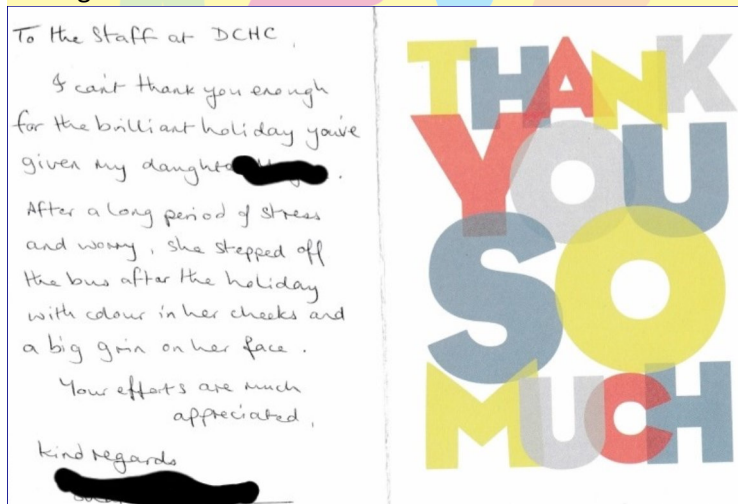 To the Staff at DCHC,
I can't thank you enough
for the brilliant holiday you've
given my daughter
.
After a long period of stress
and worry, she stepped off
the bus after the holiday
with colour in her cheeks and
a big grin on her face.
Your efforts are much
appreciated,
kind regards
THANK
YOU
SO
MUCH